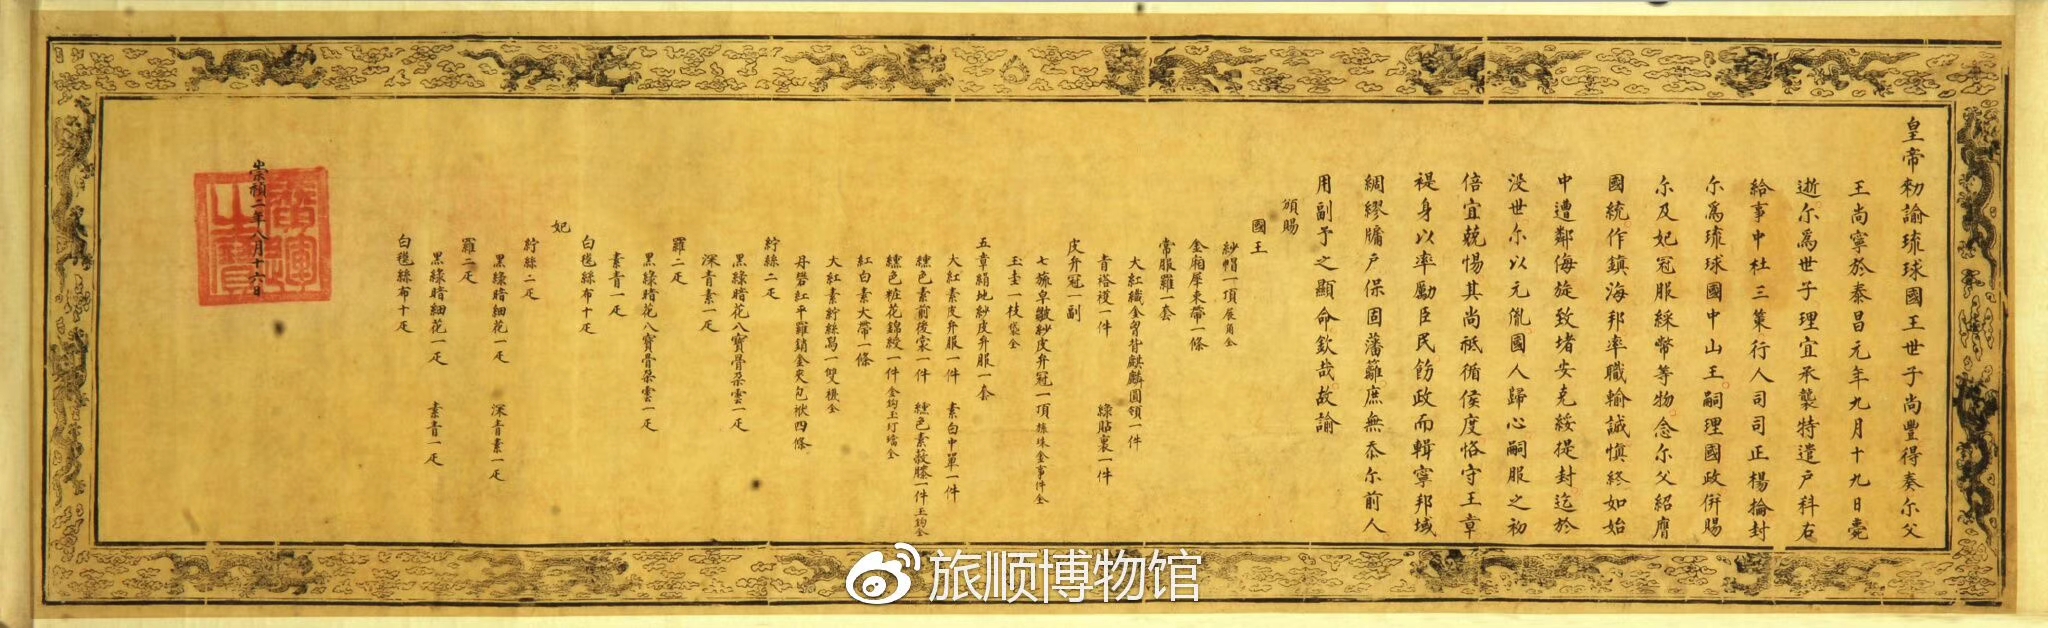 皇帝勑諭琉球國王世子尚豐得奏尔父
王尚寧於泰昌元年九月十九日薨
逝尔為世子理宜承襲特遣户科右
給事中杜三策行人司司正楊掄封
尔爲琉球國中山王嗣理國政併賜
尔及妃冠服綵幣等物念尔父紹膺
國統作鎮海邦率職輸誠慎終如始
中遭鄰侮旋致堵安克綏提封迄於
没世尔以元胤國人歸心嗣服之初
倍宜兢惕其尚祗循侯度恪守王章
禔身以率勵臣民飭政而輯寧邦域
綢繆牖户保固藩籬庶無忝尔前人
用副予之顯命欽哉故諭
頒賜
國王
紗帽一頂展角全
金廂犀束帶一條
常服羅一套
大紅織金胷背麒麟圓領一件
青褡䕶一件 綠貼裏一件
皮弁冠一副
七旒皁皺紗皮弁冠一頂旒珠金事件全
玉圭一枝袋全
五章絹地紗皮弁服一套
大紅素皮弁服一件 素白中單一件
纁色素前後裳一件 纁色素蔽膝一件玉鈎全
纁色粧花錦綬一件金鈎玉玎璫全
紅白素大帶一條
大紅素紵絲舄一雙襪全
丹礬紅平羅銷金夾包袱四條
紵絲二疋
黑綠暗花八寶骨朵雲一疋
深青素一疋
羅二疋
黑綠暗花八寶骨朵雲一疋
素青一疋
白氁絲布十疋
妃
紵絲二疋
黑綠暗細花一疋 深青素一疋
羅二疋
黑綠暗細花一疋 素青一疋
白氁絲布十疋
崇禎二年八月十六日
廣運之寶
旅顺博物馆